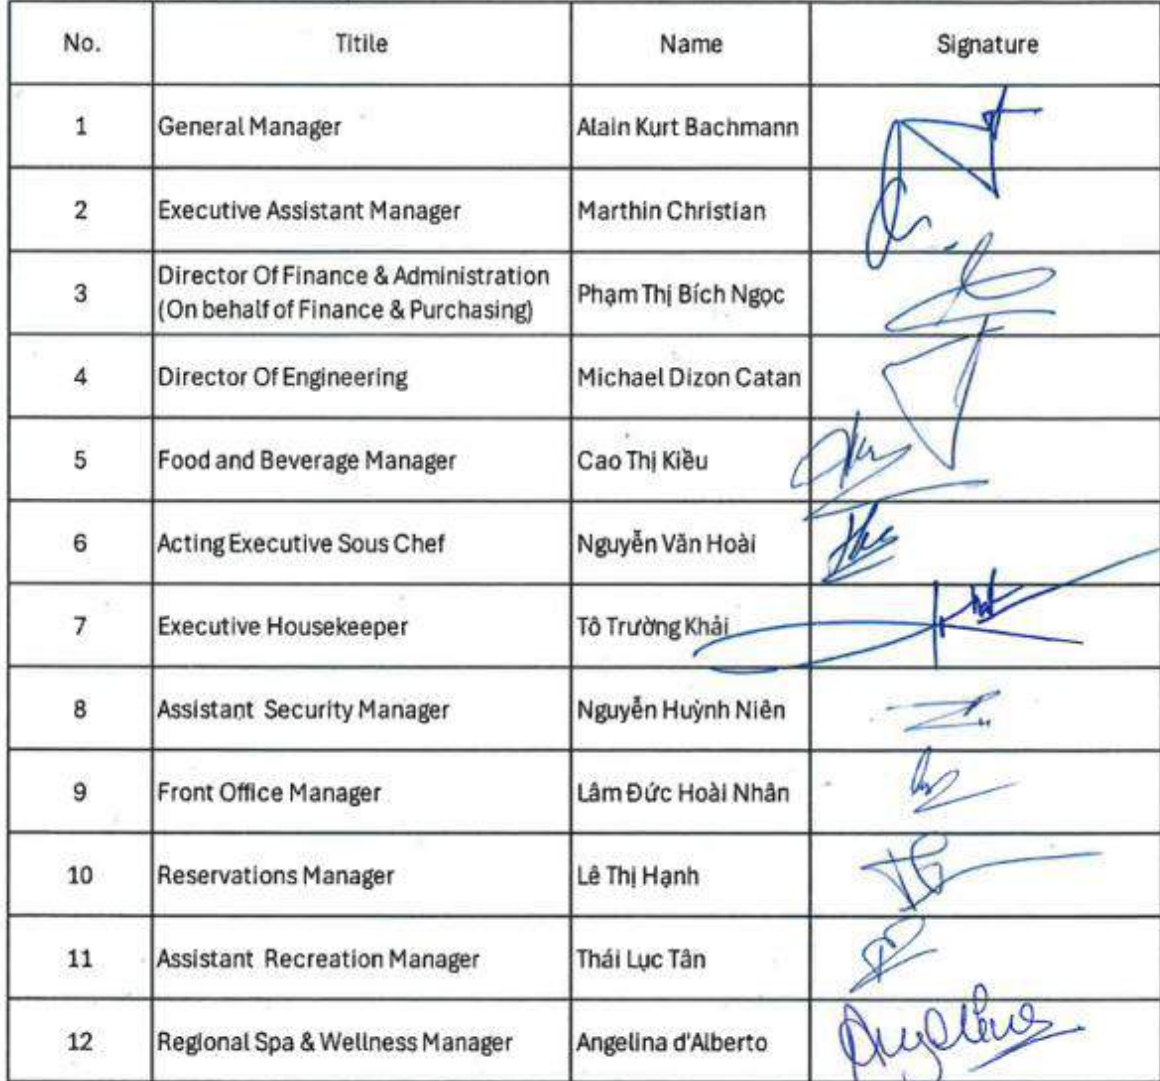 No. Titile Name Signature
1 General Manager Alain Kurt Bachmann
2 Executive Assistant Manager Marthin Christian
3 Director Of Finance & Administration
(On behalf of Finance & Purchasing) Phạm Thị Bích Ngọc
4 Director Of Engineering Michael Dizon Catan
5 Food and Beverage Manager Cao Thị Kiều
6 Acting Executive Sous Chef Nguyễn Văn Hoài
7 Executive Housekeeper Tô Trường Khải
8 Assistant Security Manager Nguyễn Huỳnh Niên
9 Front Office Manager Lâm Đức Hoài Nhân
10 Reservations Manager Lê Thị Hạnh
11 Assistant Recreation Manager Thái Lục Tân
12 Regional Spa & Wellness Manager Angelina d'Alberto